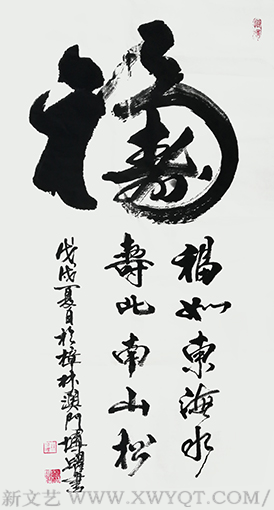 福壽
福如東海水
壽比南山松
戊戌夏日於樟林澳門博書
新文艺 WWW.XWYQT.COM